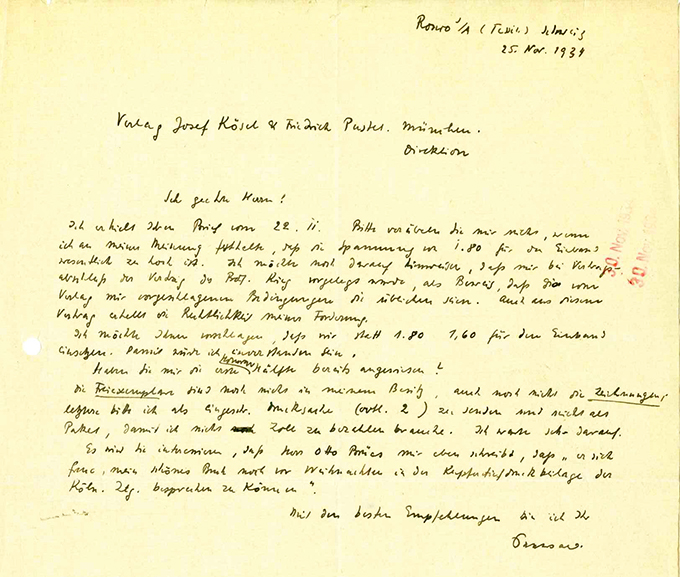 Ronco s/A (Tessin) Schweiz
25. Nov. 1934
Verlag Josef Kösel & Friedrich Pustet. München.
Direktion
Sehr geehrte Herren!
Ich erhielt Ihren Brief vom 22. II. Bitte verübeln Sie mir nicht, wenn
ich an meiner Meinung festhalte, daß die Spannung von 1.80 für den Einband
wesentlich zu hoch ist. Ich möchte noch darauf hinweisen, daß mir bei Vertrags-
abschluß der Vertrag des Prof. vorgelegt wurde, als Beweis, daß die vom
Verlag mir vorgeschlagenen Bedingungen die üblichen seien. Auch aus diesem
Vertrag erhellt die Rechtlichkeit meiner Forderung.
Ich möchte Ihnen vorschlagen, daß wir statt 1.80 1,60 für den Einband
einsetzen. Damit würde ich einverstanden sein.
Haben Sie mir die erste Honorar Hälfte bereits angewiesen?
Die Freiexemplare sind noch nicht in meinem Besitz, auch noch nicht die Zeichnungen,
letztere bitte ich als eingeschr. Drucksache (evtl. 2) zu senden und nicht als
Paket, damit ich nicht Zoll zu bezahlen brauche. Ich warte sehr darauf.
Es wird Sie interessieren, daß Herr Otto mir eben schreibt, daß „er sich
freue, mein schönes Buch noch vor Weihnachten in der Kupfertiefdruckbeilage der
Köln. Ztg. besprechen zu können".
Mit den besten Empfehlungen bin ich Ihr
30. Nov. 193
30. Nov.